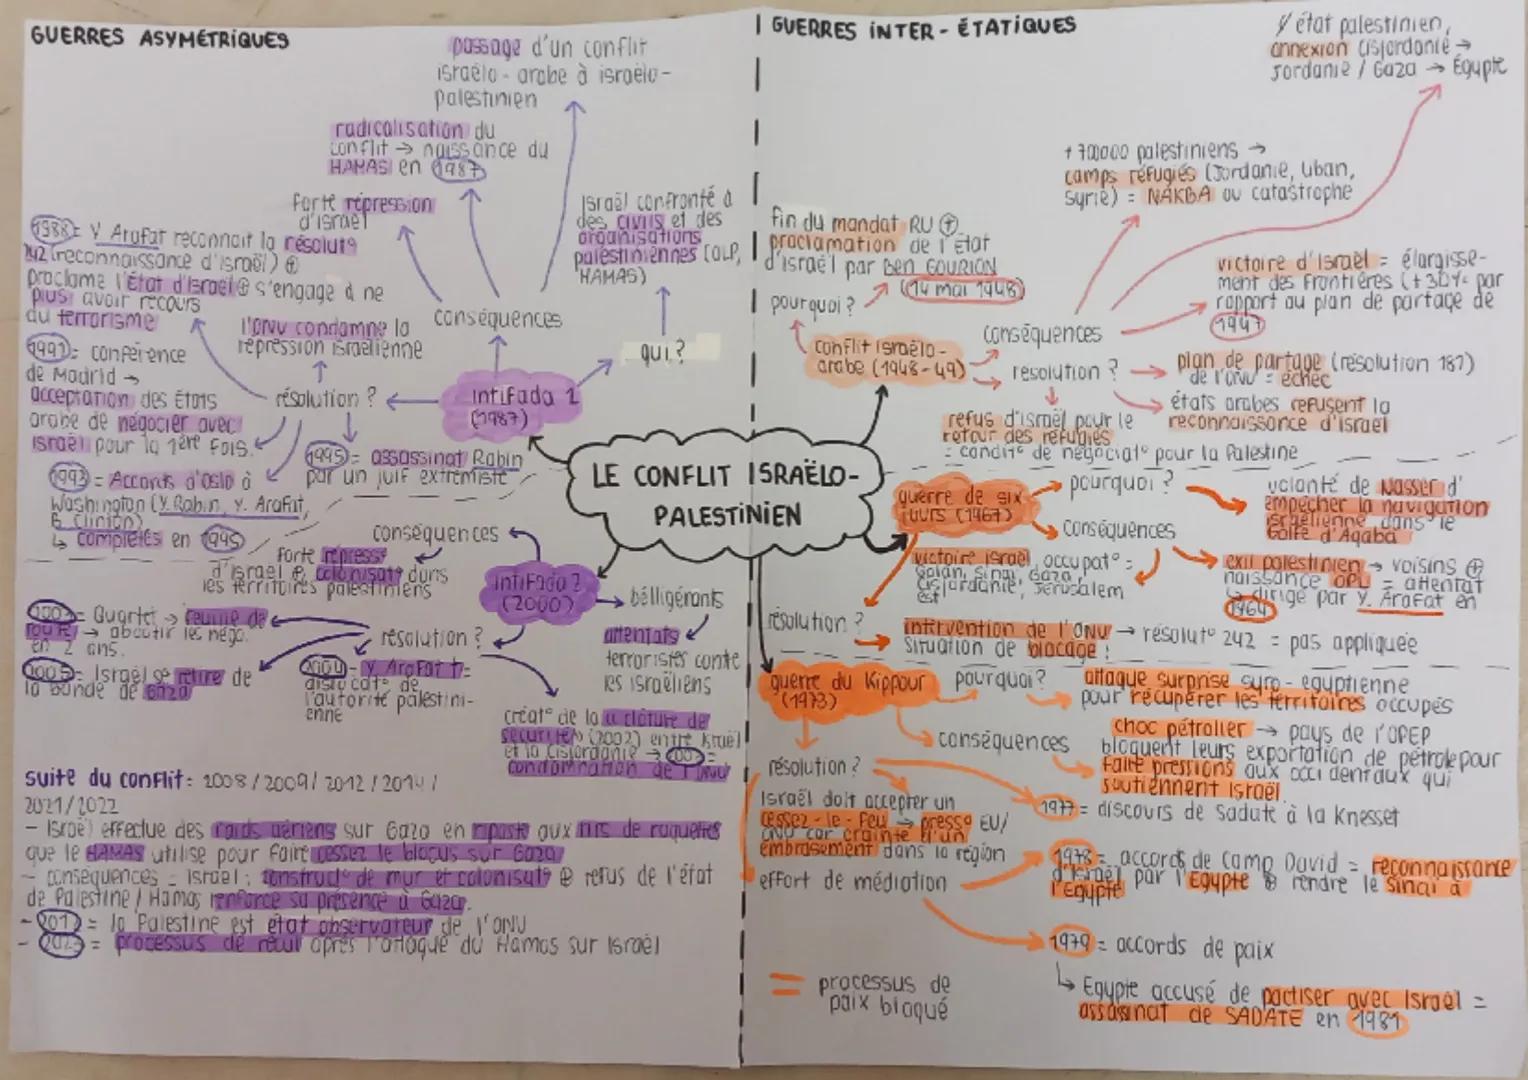 GUERRES ASYMÉTRIQUES
passage d'un conflit
israélo-arabe à israélo-
palestinien
radicalisation du
conflit → naissance du
HAMAS en 1987
forte répression
d'israël
Israël confronté à
des civils et des
organisations
palestiniennes (OLP,
HAMAS)
1988 = Y Arafat reconnait la résolut°
242 (reconnaissance d'israël) ⊕
proclame l'État d'Israël ⊕ s'engage à ne
plus avoir recours
du terrorisme
l'ONU condamne la
répression israelienne
conséquences
qui ?
1991 = conférence
de Madrid →
acceptation des États
arabe de négocier avec
Israël pour la 1ère fois.
résolution ?
intifada 1
(1987)
1995 = assassinat Rabin
par un juif extrémiste
1993 = Accords d'Oslo à
Washington (Y. Rabin, Y. Arafat,
B. Clinton)
↳ complétés en 1995
LE CONFLIT ISRAËLO-
PALESTINIEN
conséquences
forte repress°
d'israel ⊕ colonisat° dans
les territoires palestiniens
intifada 2
(2000)
bélligérants
attentats
terroristes contre
les israéliens
résolution ?
2003 = Quartet → feuille de
route → aboutir les négo.
en 2 ans.
2005 = Israël se retire de
la bande de Gaza
2004 = Y. Arafat † =
dislocat° de
l'autorité palestini-
enne
créat° de la "clôture de
sécurité" (2002) entre Israël
et la Cisjordanie →
condamnation de l'ONU
suite du conflit : 2008 / 2009 / 2012 / 2014 /
2021 / 2022
- Israël effectue des raids aériens sur Gaza en riposte aux tirs de roquettes
que le HAMAS utilise pour faire cesser le blocus sur Gaza
- conséquences = Israel : construct° de mur et colonisat° ⊕ refus de l'état
de Palestine / Hamas renforce sa présence à Gaza.
- 2012 = la Palestine est état observateur de l'ONU
- 2023 = processus de recul après l'attaque du Hamas sur Israël
GUERRES INTER-ÉTATIQUES
état palestinien,
annexion Cisjordanie →
Jordanie / Gaza → Égypte
+ 700000 palestiniens →
camps réfugiés (Jordanie, Liban,
Syrie) = NAKBA ou catastrophe
fin du mandat RU ⊕
proclamation de l'État
d'israël par Ben GOURION
(14 mai 1948)
pourquoi ?
victoire d'Israël = élargisse-
ment des frontières (+30% par
rapport au plan de partage de
1947)
conflit israélo-
arabe (1948-49)
conséquences
résolution ?
plan de partage (résolution 181)
de l'ONU = échec
états arabes refusent la
reconnaissance d'Israël
refus d'israël pour le
retour des réfugiés
= condit° de négociat° pour la Palestine
guerre de six
jours (1967)
pourquoi ?
volonté de Nasser d'
empêcher la navigation
israélienne dans le
Golfe d'Aqaba
conséquences
victoire israël, occupat° =
Golan, Sinaï, Gaza,
Cisjordanie, Jérusalem
est
exil palestinien → voisins ⊕
naissance OPL = attentat
↳ dirigé par Y. Arafat en
1964
résolution ?
intervention de l'ONU → résolut° 242 = pas appliquée
situation de blocage !
guerre du Kippour
(1973)
pourquoi ?
attaque surprise syro-égyptienne
pour récupérer les territoires occupés
conséquences
choc pétrolier → pays de l'OPEP
bloquent leurs exportation de pétrole pour
faire pressions aux occidentaux qui
soutiennent Israël
résolution ?
Israël doit accepter un
cessez-le-feu → press° EU/
ONU car crainte d'un
embrasement dans la région
1977 = discours de Sadate à la Knesset
effort de médiation
1978 = accords de Camp David = reconnaissance
d'Israël par l'Egypte ⊕ rendre le Sinaï à
l'Egypte
1979 = accords de paix
↳ Egypte accusé de pactiser avec Israël =
assassinat de SADATE en 1981
= processus de
paix bloqué